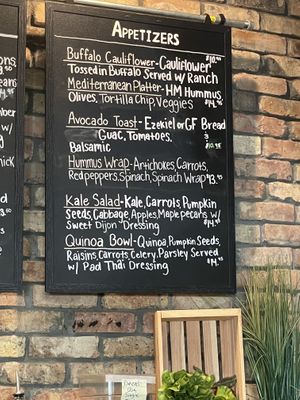 APPETIZERS
Buffalo Cauliflower-Cauliflower $10.95
Tossed in Buffalo Served w/ Ranch
Mediterranean Platter-HM Hummus
Olives, Tortilla Chip, Veggies $14.95
Avocado Toast-Ezekiel or GF Bread
Guac, Tomatoes,
Balsamic $10.95
Hummus Wrap-Artichokes, Carrots,
Red peppers, Spinach, Spinach Wrap $13.95
Kale Salad-Kale, Carrots, Pumpkin
Seeds, Cabbage, Apples, Maple pecans w/
Sweet Dijon Dressing $14.95
Quinoa Bowl-Quinoa, Pumpkin Seeds,
Raisins, Carrots, Celery, Parsley Served
w/ Pad Thai Dressing $14.95